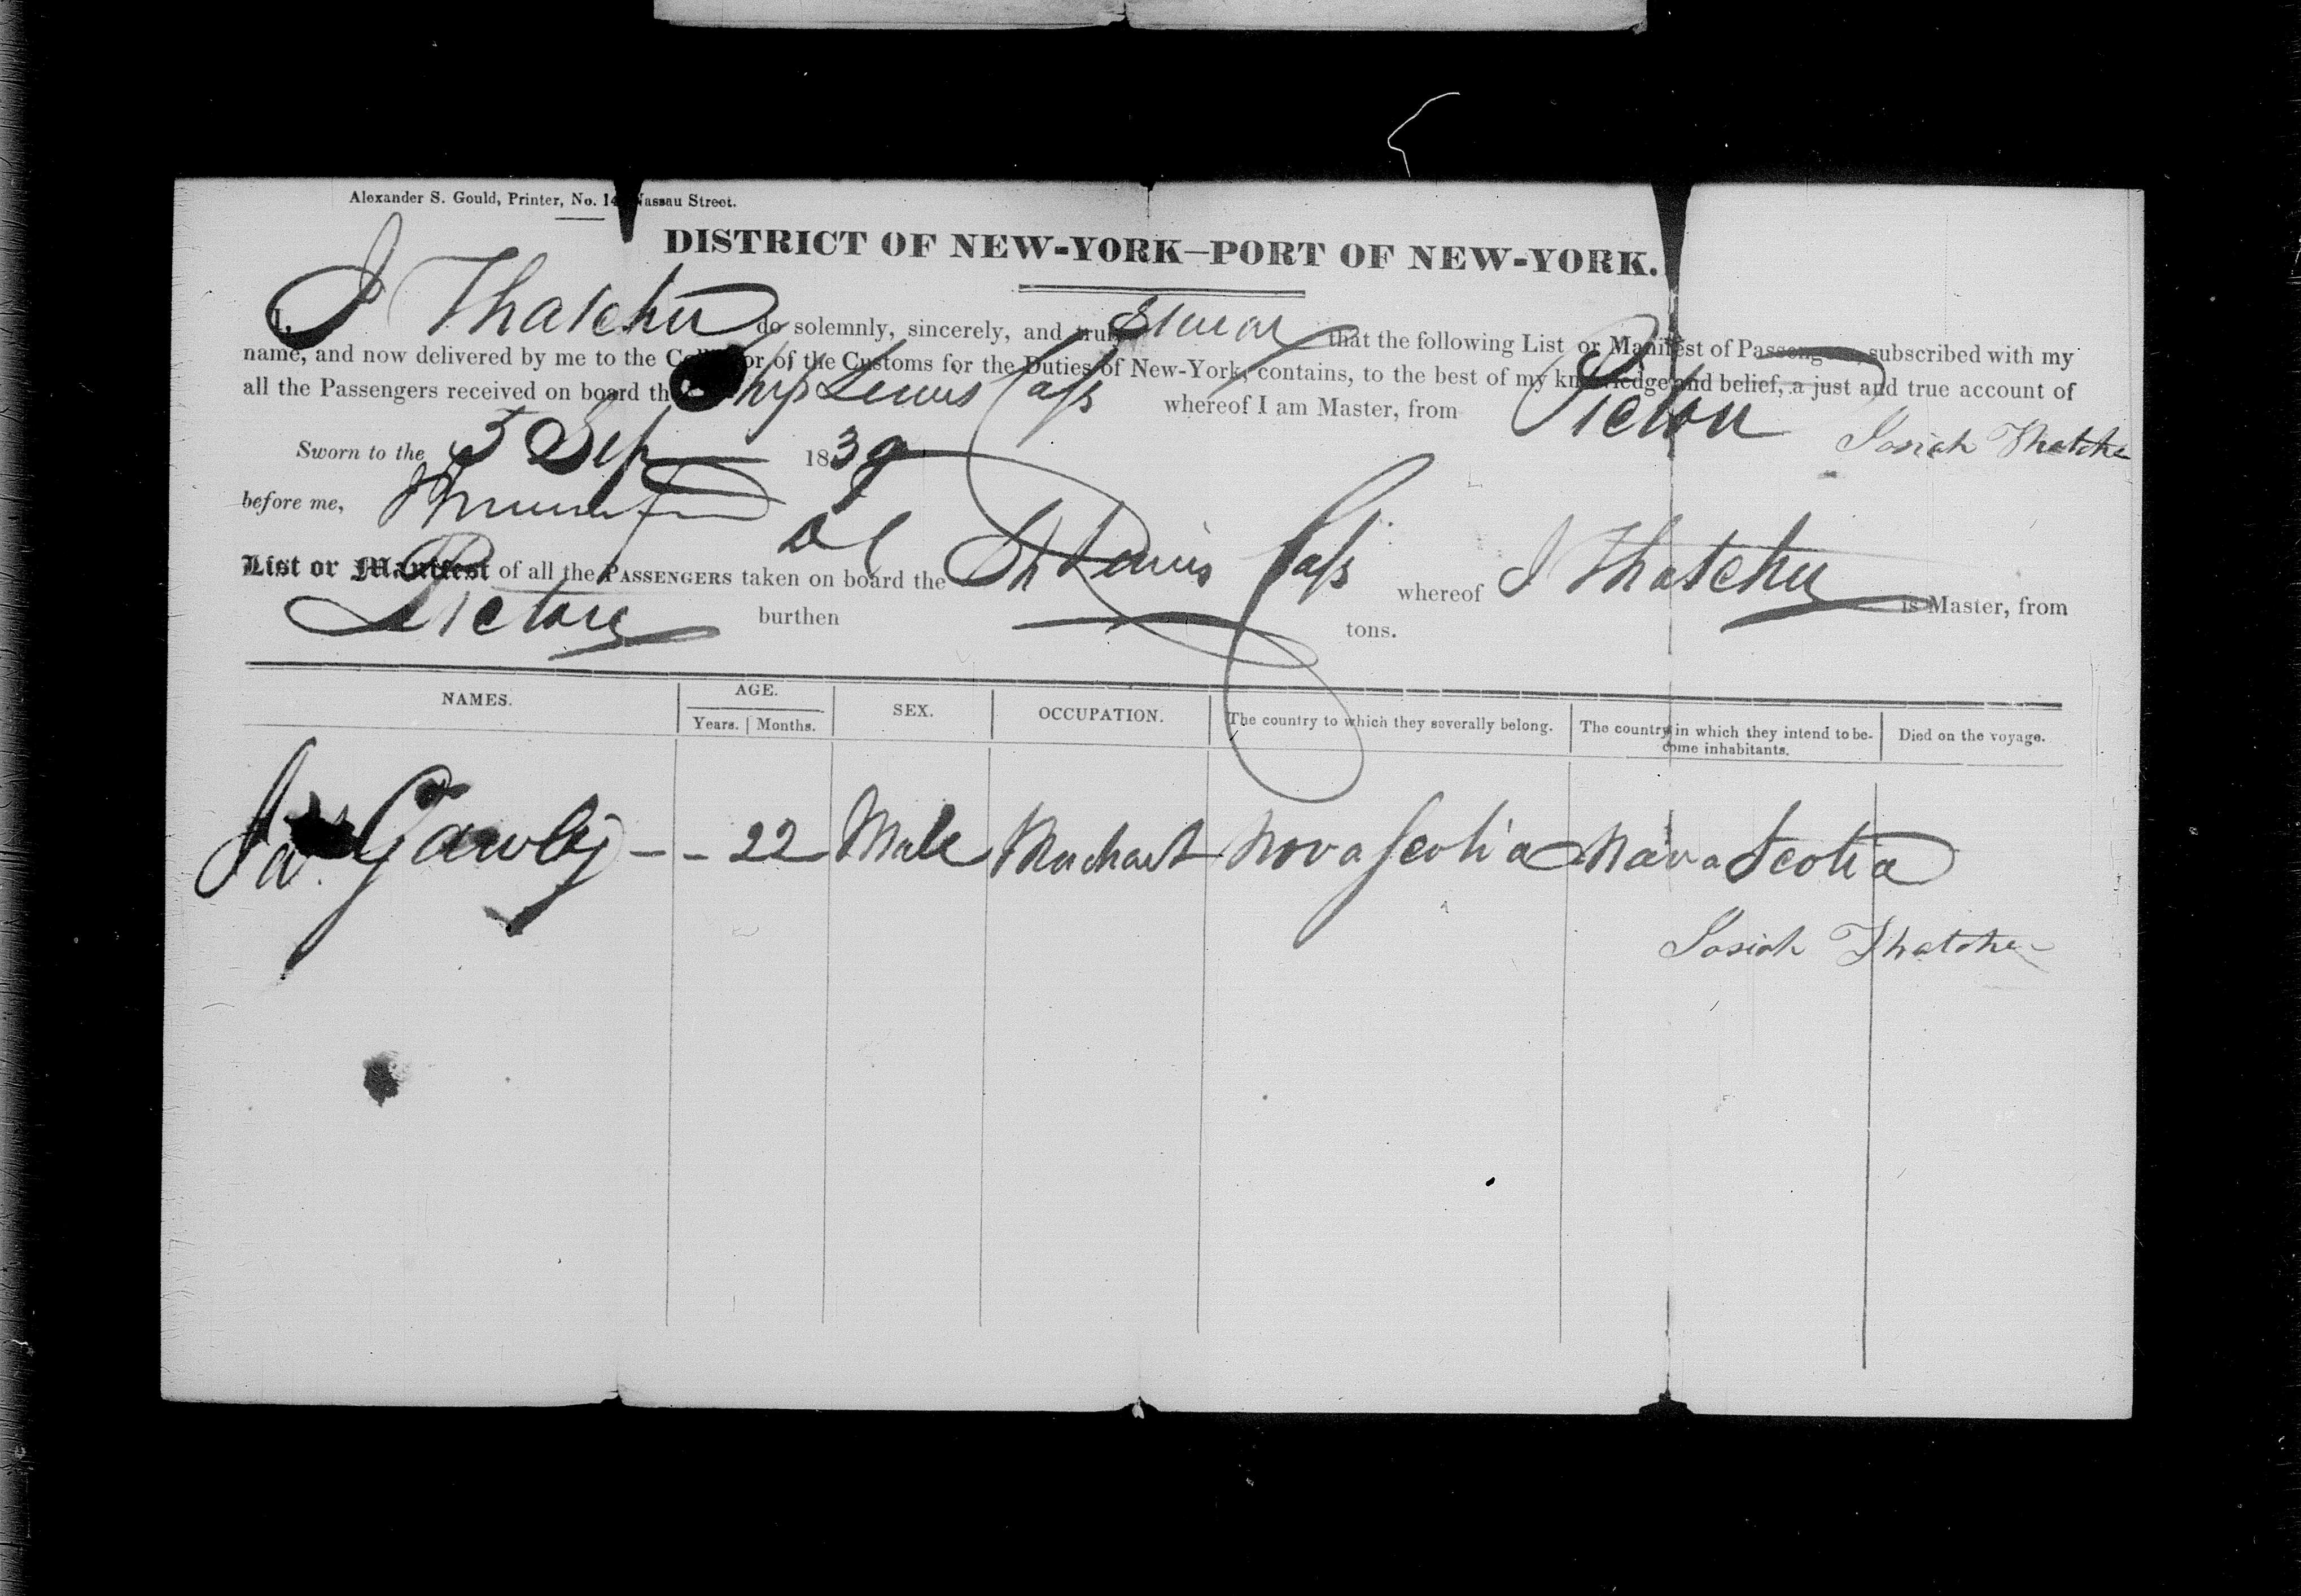 Alexander S. Gould, Printer, No. 14 Nassau Street.
DISTRICT OF NEW-YORK—PORT OF NEW-YORK.
I, J Thatcher do solemnly, sincerely, and truly Swear that the following List or Manifest of Passengers, subscribed with my
name, and now delivered by me to the Collector of the Customs for the Duties of New-York, contains, to the best of my knowledge and belief, a just and true account of
all the Passengers received on board the Ship Lewis Cass whereof I am Master, from Pictou
Josiah Thatcher
Sworn to the 5 Sep 1839
before me,
List or Manifest of all the PASSENGERS taken on board the Sh Lewis Cass whereof J Thatcher is Master, from
Pictou burthen tons.
NAMES. AGE. SEX. OCCUPATION. The country to which they severally belong. The country in which they intend to become inhabitants. Died on the voyage.
Years. Months.
Gawley -- 22 Male Merchant Nova Scotia Nova Scotia
Josiah Thatcher